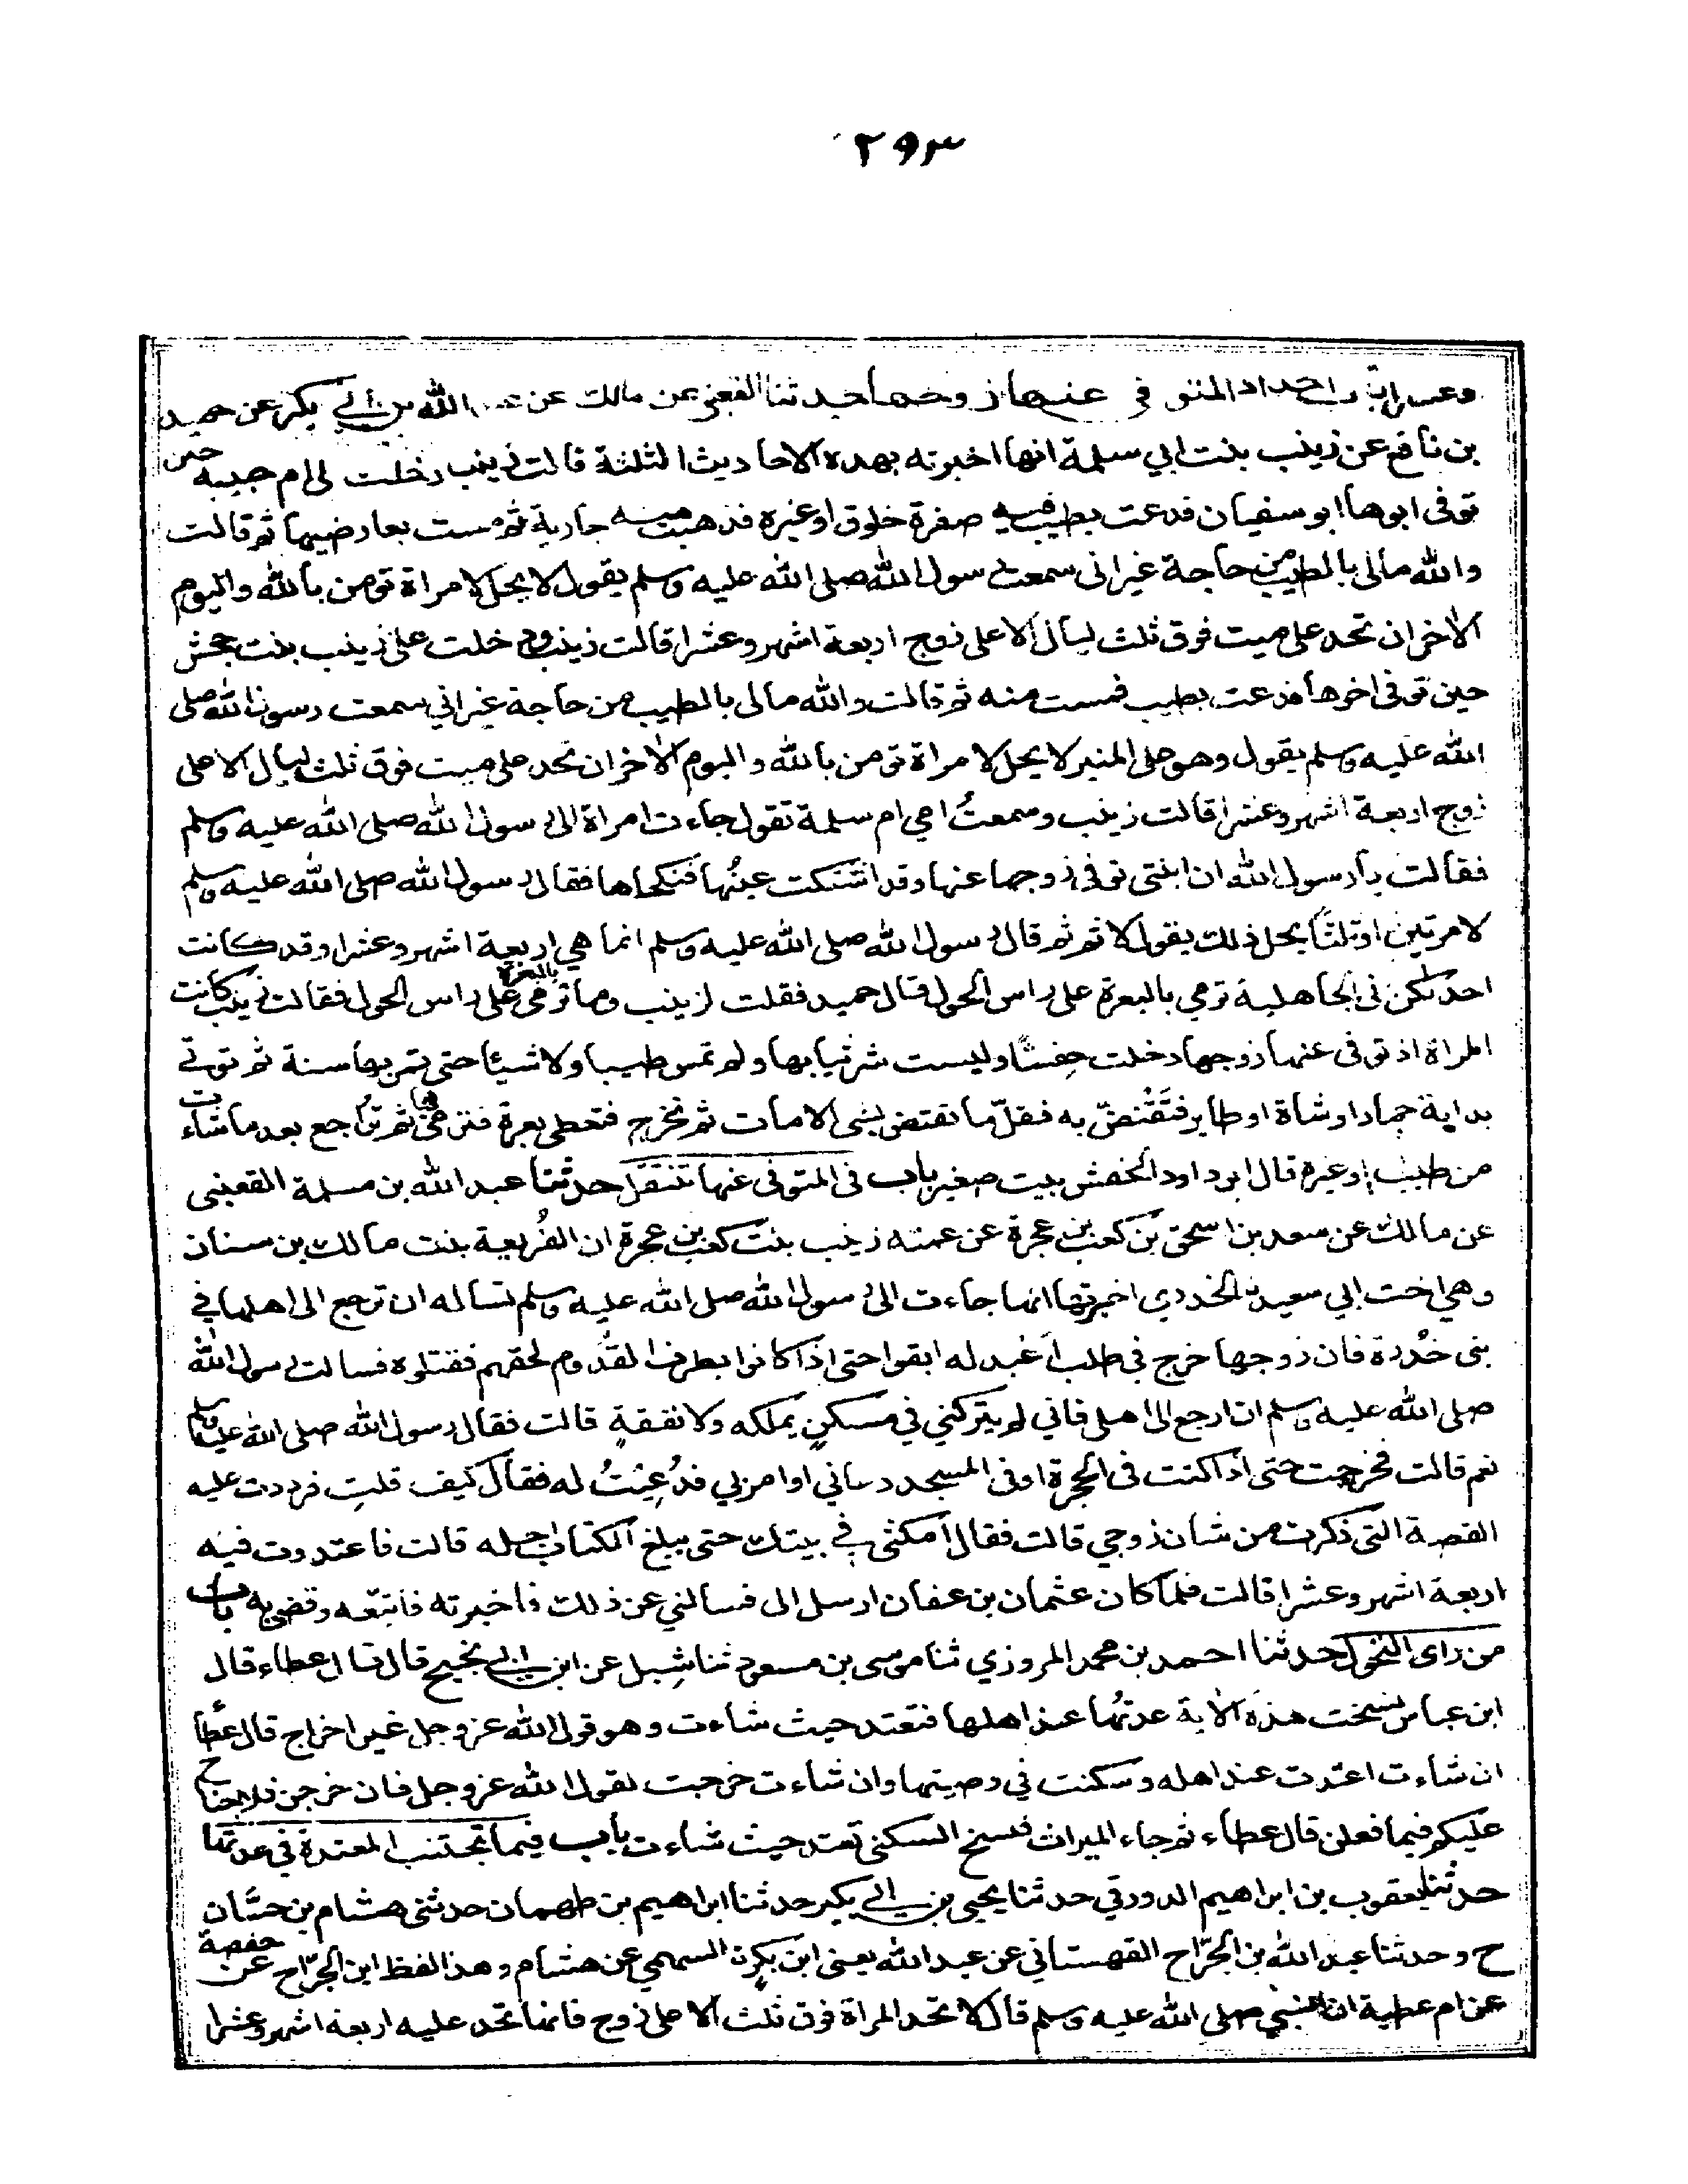 ٢٩٣
وعشرا باب احداد المتوفى عنها زوجها حدثنا القعنبي عن مالك عن عبد الله بن أبي بكر عن حميد
بن نافع عن زينب بنت ابي سلمة انها اخبرته بهذه الاحاديث الثلثة قالت زينب دخلت على ام حبيبة حين
توفى ابوها ابو سفيان فدعت بطيب فيه صفرة خلوق او غيره فدهنت منه جارية ثم مست بعارضيها ثم قالت
والله مالي بالطيب من حاجة غير اني سمعت رسول الله صلى الله عليه وسلم يقول لا يحل لامراة تومن بالله واليوم
الاخر ان تحد على ميت فوق ثلث ليال الا على زوج اربعة اشهر وعشرا قالت زينب ودخلت على زينب بنت جحش
حين توفى اخوها فدعت بطيب فمست منه ثم قالت والله مالي بالطيب من حاجة غير اني سمعت رسول الله صلى
الله عليه وسلم يقول وهو على المنبر لا يحل لامراة تومن بالله واليوم الاخر ان تحد على ميت فوق ثلث ليال الا على
زوج اربعة اشهر وعشرا قالت زينب وسمعتُ امي ام سلمة تقول جاءت امراة الى رسول الله صلى الله عليه وسلم
فقالت يا رسول الله ان ابنتي توفى زوجها عنها وقد اشتكت عينُها فنكحلها فقال رسول الله صلى الله عليه وسلم
لا مرتين او ثلثًا كل ذلك يقول لا ثم قال رسول الله صلى الله عليه وسلم انما هي اربعة اشهر وعشرا وقد كانت
احدٰكن في الجاهلية ترمي بالبعرة على راس الحول قال حميد فقلت لزينب وما ترمي بالبعرة على راس الحول فقالت زينب كانت
المراة اذ توفى عنها زوجها دخلت حِفشًا ولبست شر ثيابها ولم تمس طيبا ولا شيئا حتى تمر بها سنة ثم توتى
بداية حمار او شاة او طاير فتَقْتضّ به فقلّ ما تفتض بشي الا مات ثم تخرج فتعطى بعرة فترمي بها ثم تُراجع بعد ما شاءت
من طيب او غيره قال ابو داود الحفش بيت صغير باب في المتوفى عنها تنتقل حدثنا عبد الله بن مسلمة القعنبي
عن مالك عن سعد بن اسحق بن كعب بن عجرة عن عمته زينب بنت كعب بن عجرة ان الفُريعة بنت مالك بن سنان
وهي اخت ابي سعيد الخدري اخبرتها انها جاءت الى رسول الله صلى الله عليه وسلم تساله ان ترجع الى اهلها في
بني خُدرة فان زوجها خرج في طلب اَعْبد له ابقوا حتى اذا كانوا بطرف القَدُوم لحقهم فقتلوه فسالت رسول الله
صلى الله عليه وسلم ان ارجع الى اهلي فاني لم يتركني في مسكنٍ يملكه ولا نفقةٍ قالت فقال رسول الله صلى الله عليه وسلم
نعم قالت فخرجت حتى اذا كنت في الحجرة او في المسجد دعاني او امر بي فدُعِيْتُ له فقال كيف قلتِ فرددت عليه
القصة التي ذكرت من شان زوجي قالت فقال امكثي في بيتك حتى يبلغ الكتاب اجله قالت فاعتددت فيه
اربعة اشهر وعشرا قالت فلما كان عثمان بن عفان ارسل الى فسالني عن ذلك فاخبرته فاتبعه وقضى به باب
من راى التحول حدثنا احمد بن محمد المروزي ثنا موسى بن مسعود ثنا شِبل عن ابن ابي نجيح قال قال عطاء قال
ابن عباس نسخت هذه الاية عدتها عند اهلها فتعتد حيث شاءت وهو قول الله عز وجل غير اخراج قال عطاء
ان شاءت اعتدت عند اهله وسكنت في وصيتها وان شاءت خرجت لقول الله عز وجل فان خرجن فلا جناح
عليكم فيما فعلن قال عطاء ثم جاء الميراث فنسخ السكنى تعتد حيث شاءت باب فيما تجتنب المعتدة في عدتها
حدثنا يعقوب بن ابراهيم الدورقي حدثنا يحيى بن ابي بكير حدثنا ابراهيم بن طهمان حدثني هشام بن حسَّان
ح وحدثنا عبد الله بن الجرّاح القهستاني عن عبد الله يعني ابن بكرٍ السهمي عن هشام وهذا لفظ ابن الجرّاح عن حفصة
عن ام عطية ان النبي صلى الله عليه وسلم قال لا تحد المراة فوق ثلث الا على زوج فانها تحد عليه اربعة اشهر وعشرا